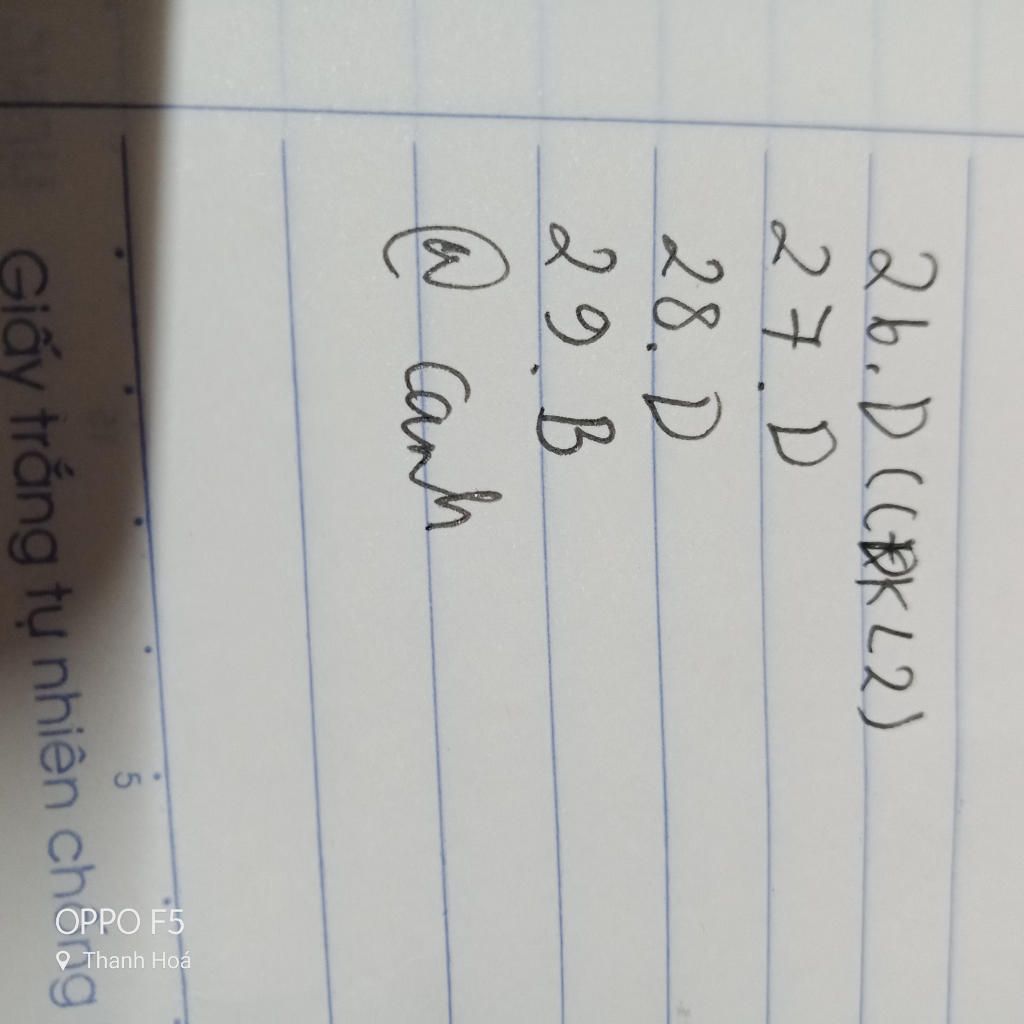 26. D (CĐKL2)
27. D
28. D
29. B
@ Canh
5
Giấy trắng tự nhiên chống
OPPO F5
Thanh Hoá